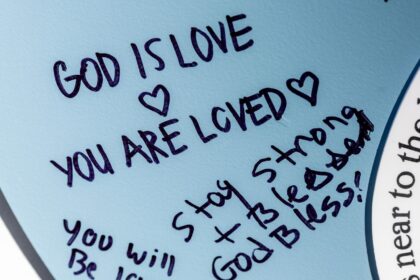 GOD IS LOVE
♡
YOU ARE LOVED ♡
Stay Strong
+ Blessed
God Bless!
You will
Be
near to the